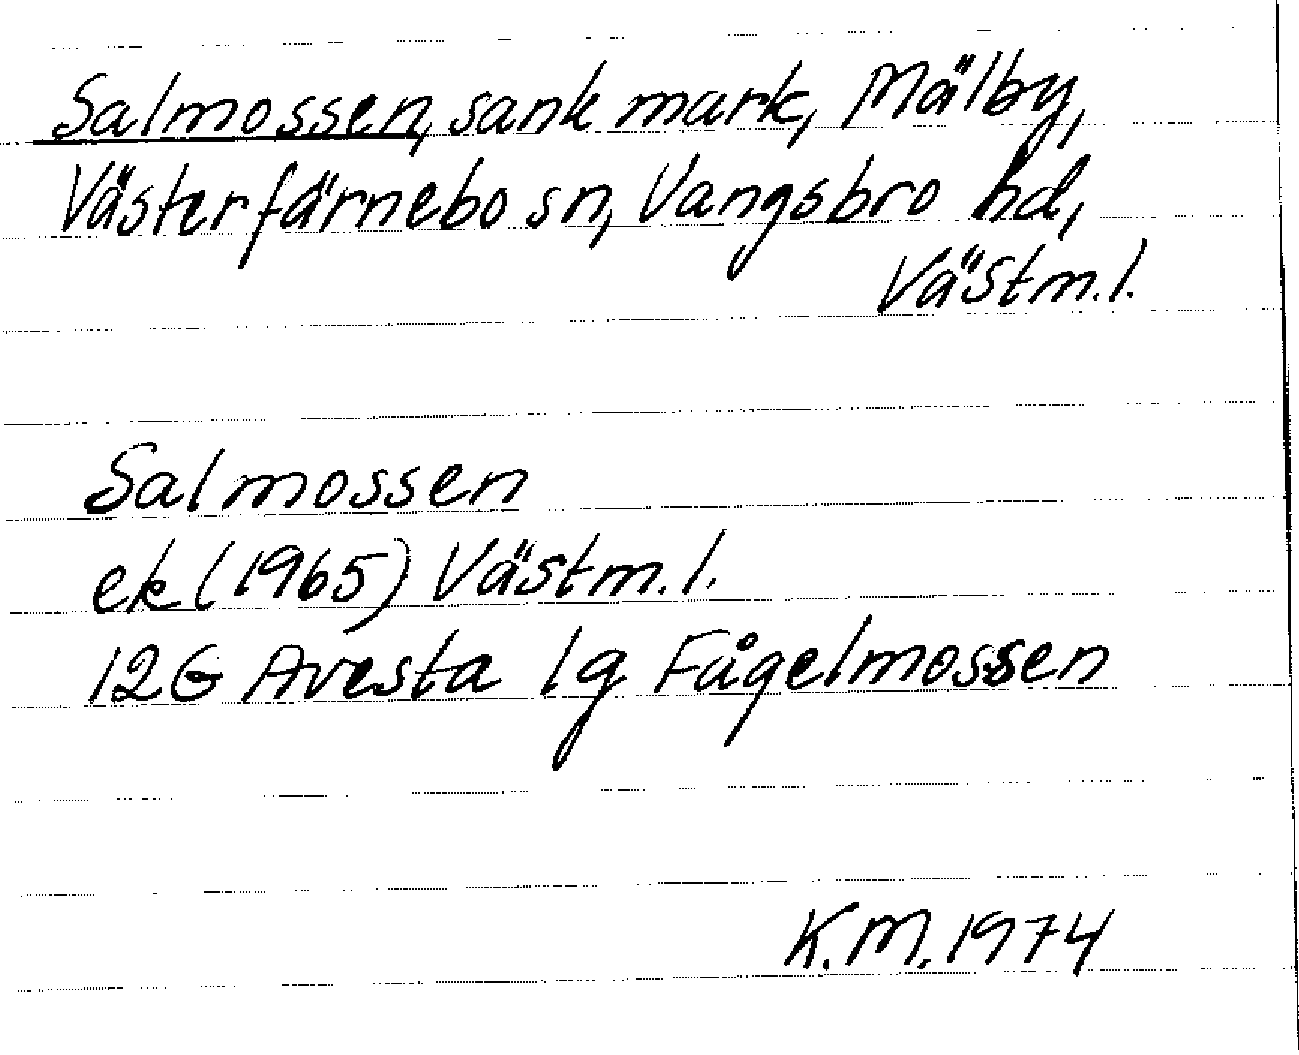 Salmossen, sank mark, Mälby,
Västerfärnebo sn, Vangsbro hd,
Västm.l.
Salmossen
ek (1965) Västm.l.
12G Avesta 1g Fågelmossen
K.M. 1974